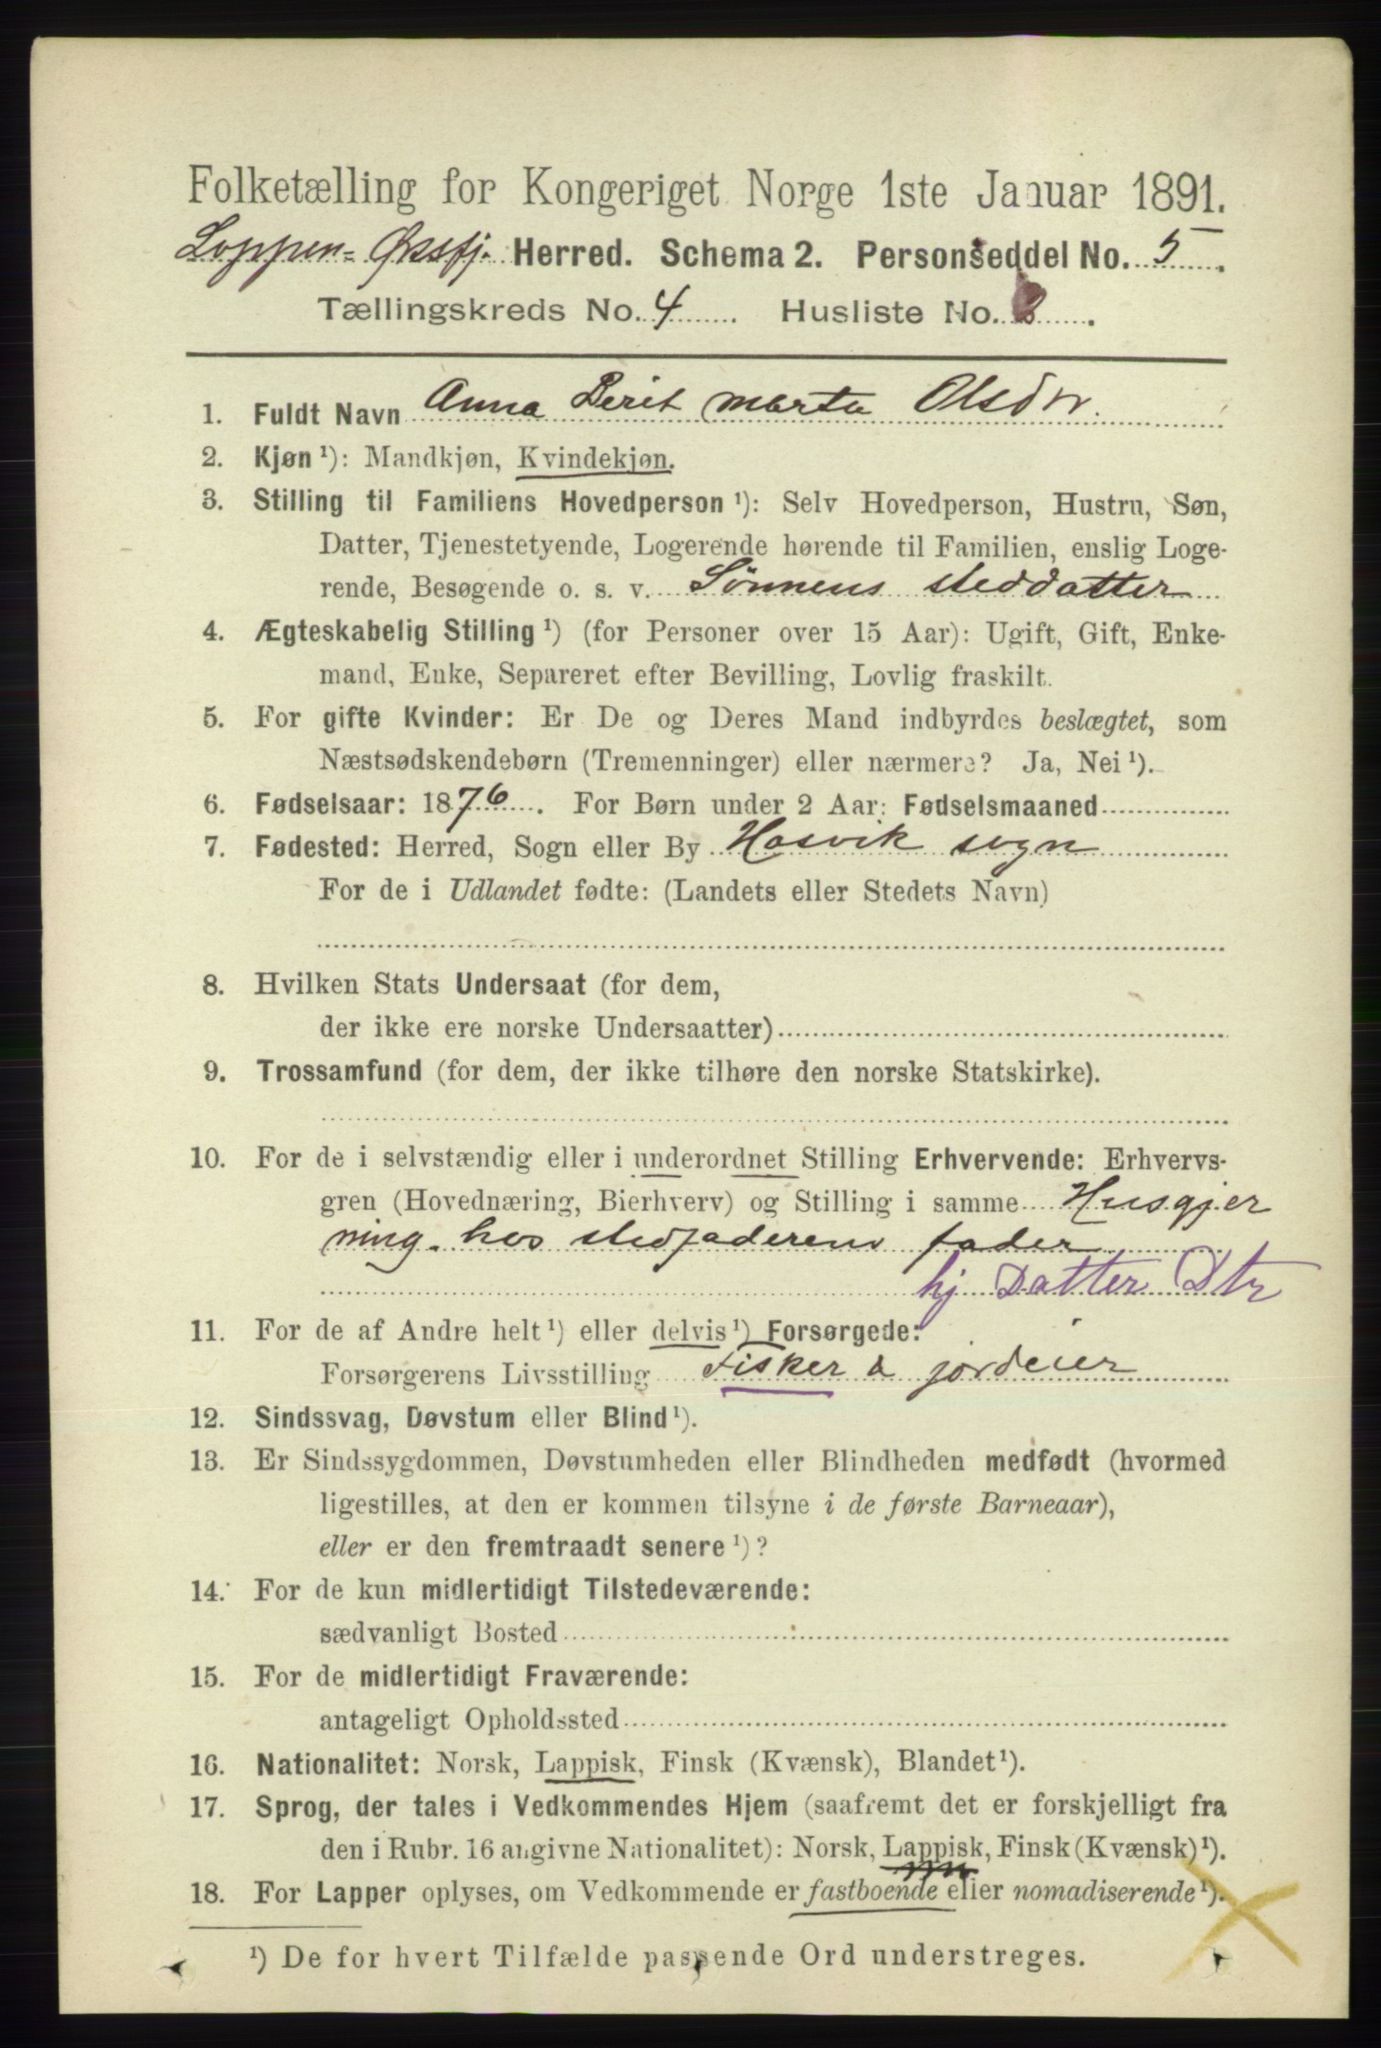 Folketælling for Kongeriget Norge 1ste Januar 1891.
Loppen-Øksfj. Herred. Schema 2. Personseddel No. 5.
Tællingskreds No. 4. Husliste No. 8.
1. Fuldt Navn Anna Berit Marta Olsdtr.
2. Kjøn ¹): Mandkjøn, Kvindekjøn.
3. Stilling til Familiens Hovedperson ¹): Selv Hovedperson, Hustru, Søn,
Datter, Tjenestetyende, Logerende hørende til Familien, enslig Loge-
rende, Besøgende o. s. v. Sønnens steddatter
4. Ægteskabelig Stilling ¹) (for Personer over 15 Aar): Ugift, Gift, Enke-
mand, Enke, Separeret efter Bevilling, Lovlig fraskilt.
5. For gifte Kvinder: Er De og Deres Mand indbyrdes beslægtet, som
Næstsødskendebørn (Tremenninger) eller nærmere? Ja, Nei ¹).
6. Fødselsaar: 1876. For Børn under 2 Aar: Fødselsmaaned
7. Fødested: Herred, Sogn eller By Hasvik sogn
For de i Udlandet fødte: (Landets eller Stedets Navn)
8. Hvilken Stats Undersaat (for dem,
der ikke ere norske Undersaatter)
9. Trossamfund (for dem, der ikke tilhøre den norske Statskirke).
10. For de i selvstændig eller i underordnet Stilling Erhvervende: Erhvervs-
gren (Hovednæring, Bierhverv) og Stilling i samme Husgjer
ning. hos stedfaderens fader
hj Datter Dtr
11. For de af Andre helt ¹) eller delvis ¹) Forsørgede:
Forsørgerens Livsstilling Fisker & jordeier
12. Sindssvag, Døvstum eller Blind ¹).
13. Er Sindssygdommen, Døvstumheden eller Blindheden medfødt (hvormed
ligestilles, at den er kommen tilsyne i de første Barneaar),
eller er den fremtraadt senere ¹)?
14. For de kun midlertidigt Tilstedeværende:
sædvanligt Bosted
15. For de midlertidigt Fraværende:
antageligt Opholdssted
16. Nationalitet: Norsk, Lappisk, Finsk (Kvænsk), Blandet ¹).
17. Sprog, der tales i Vedkommendes Hjem (saafremt det er forskjelligt fra
den i Rubr. 16 angivne Nationalitet): Norsk, Lappisk, Finsk (Kvænsk) ¹).
18. For Lapper oplyses, om Vedkommende er fastboende eller nomadiserende ¹).
¹) De for hvert Tilfælde passende Ord understreges.